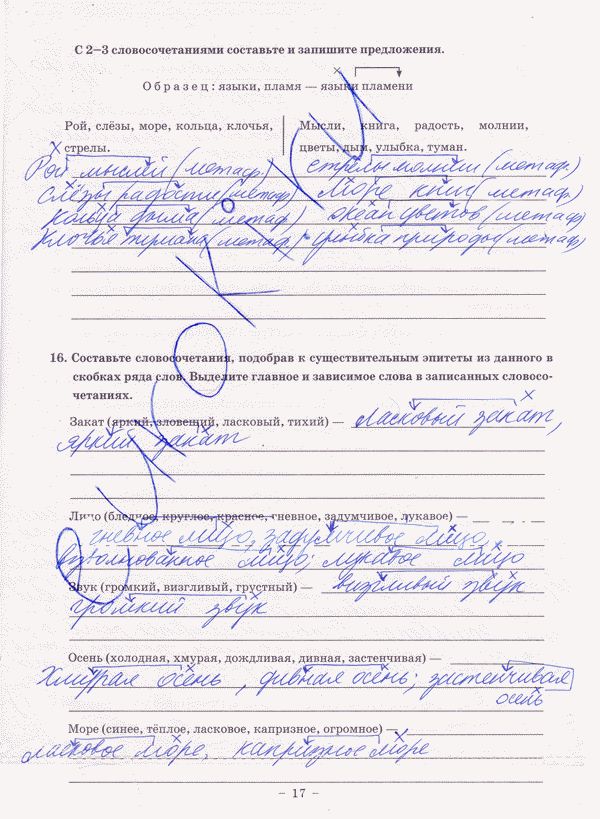 С 2—3 словосочетаниями составьте и запишите предложения.
Образец: языки, пламя — языки пламени
Рой, слёзы, море, кольца, клочья, стрелы.
Мысли, книга, радость, молнии, цветы, дым, улыбка, туман.
Рой мыслей (метаф.) стрелы молнии (метаф.)
Слёзы радости (метаф) Море книг (метаф)
кольца дыма (метаф) океан цветов (метаф)
Клочья тумана (метаф.) улыбка природы (метаф)
16. Составьте словосочетания, подобрав к существительным эпитеты из данного в
скобках ряда слов. Выделите главное и зависимое слова в записанных словосо-
четаниях.
Закат (яркий, зловещий, ласковый, тихий) — Ласковый закат,
яркий закат
Лицо (бледное, круглое, красное, гневное, задумчивое, лукавое) —
гневное лицо, задумчивое лицо,
взволнованное лицо; лукавое лицо
Звук (громкий, визгливый, грустный) — визгливый звук
громкий звук
Осень (холодная, хмурая, дождливая, дивная, застенчивая) —
Хмурая осень, дивная осень; застенчивая
осень
Море (синее, тёплое, ласковое, капризное, огромное) —
ласковое море, капризное море
– 17 –